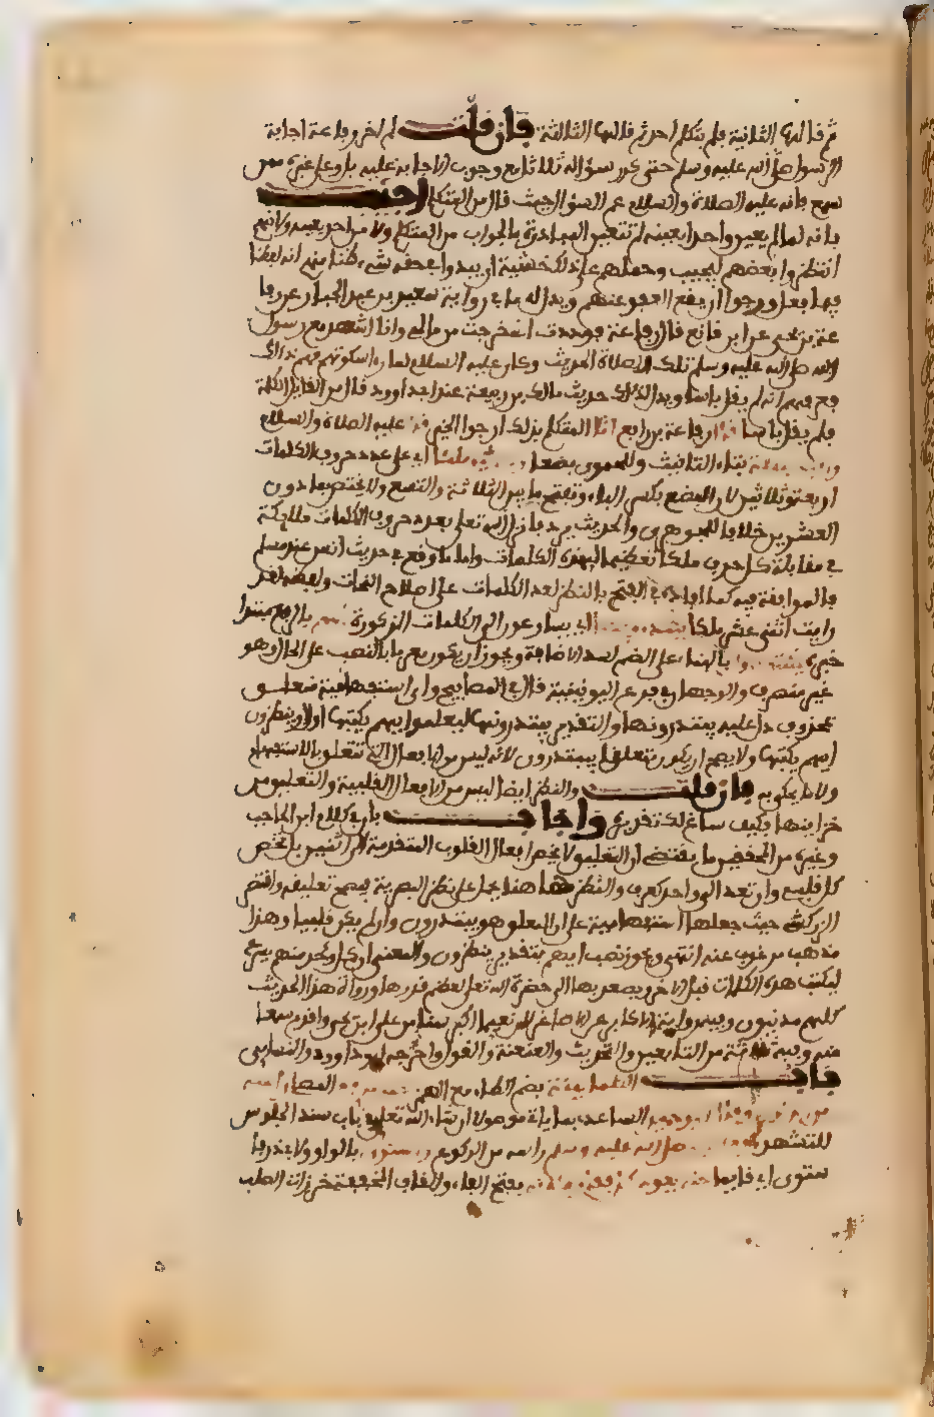 ثم قالها الثانية فلم يتكلم احد ثم قالها الثالثة فان قلت لم اخر رفاعة اجابة
الرسول صلى الله عليه وسلم حتى كرر سؤاله ثلاثا مع وجوب الاجابة عليه بل وعلى غيره ممن
سمع فانه عليه الصلاة والسلام عم السؤال حيث قال من المتكلم اجيب
بانه لما لم يعين واحدا بعينه لم تتعين المبادرة بالجواب من المتكلم ولا من احد بعينه وكانهم
انتظروا بعضهم ليجيب وحملهم على ذلك خشية ان يبدوا في حقه شيء ظنا منهم انه اخطا
فيما فعل ورجوا ان يقع العفو عنهم ويدل له ما في رواية سعيد بن عبد الجبار عن رفا
عة بن يحيى عن ابن قانع قال رفاعة فوددت اني خرجت من مالي واني لم اشهد مع رسول
الله صلى الله عليه وسلم تلك الصلاة الحديث وكان عليه السلام لما راى سكوتهم فهم ذلك
فعرفهم انه لم يقل باسا ويدل لذلك حديث مالك بن ربيعة عند ابي داوود قال من القايل الكلمة
فلم يقل باسا قال رفاعة بن رافع انا المتكلم بذلك ارجوا الخير قال عليه الصلاة والسلام
رايت بضعة بتاء التانيث وللحموي بضعا وثلاثين ملكا اي على عدد حروف الكلمات
اربعة وثلاثين لان البضع بكسر الباء وتفتح ما بين الثلاثة والتسع ولا يختص بما دون
العشرين خلافا للجوهري والحديث يرد فانزل الله تعلى بعدد حروف الكلمات ملايكة
في مقابلة كل حرف ملكا تعظيما لهذه الكلمات واما ما وقع في حديث انس عند مسلم
فالموافقة فيه كما افاده في الفتح بالنظر لعدد الكلمات على اصلاح النحات ولفظه لقد
رايت اثنى عشر ملكا يبتدرونها اي يسارعون الى الكلمات المذكورة ايهم بالرفع مبتدا
خبره يكتبها اول بالبناء على الضم لنية الاضافة ويجوز ان يكون معربا بالنصب على الحال وهو
غير منصرف والوجهان في فرع اليونينية قال في المصابيح واي استفهامية متعلق
بمحذوف دل عليه يبتدرونها والتقدير يبتدرونها ليعلموا ايهم يكتبها اول او ينظرون
ايهم يكتبها ولا يصح ان يكون متعلقا بيبتدرون لانه ليس من الافعال التي تتعلق بالاستفهام
ولا مما يحكى به فان قلت والنظر ايضا ليس من الافعال القلبية والتعليق من
خواصها فكيف ساغ لك تقديره واجاب بان في كلام ابن الحاجب
وغيره من المحققين ما يقتضي ان التعليق لا يخص افعال القلوب المتعدية الى اثنين بل يخص
كل قلبي وان تعدى الى واحد كعرف والنظر هنا يحمل على نظر البصيرة فيصح تعليقه واقتصر
الزركشي حيث جعلها استفهامية على ان المعلق هو يبتدرون وان لم يكن قلبيا وهذا
مذهب مرغوب عنه انتهى ويجوز نصب ايهم بتقدير ينظرون والمعنى ان كل واحد منهم يسرع
ليكتب هذه الكلمات قبل الاخر ويصعد بها الى حضرة الله تعلى لعظم قدرها ورواة هذا الحديث
كلهم مدنيون وفيه رواية الاكابر عن الاصاغر لان نعيما اكبر سنا من علي ابن يحيى واقدم سماعا
منه وفيه ثلاثة من التابعين والتحديث والعنعنة والقول واخرجه ابو داوود والنسايي
باب الطمانينة بضم الطاء مع الهمز
الساعدي مما ياتي موصولا ان شاء الله تعلى في باب سنة الجلوس
للتشهد صلى الله عليه وسلم راسه من الركوع واستوى بالواو ولابي ذر فا
ستوى اي قايما حتى يعود كل فقار مكانه بفتح الفاء والقاف الخفيفة خرزات الصلب